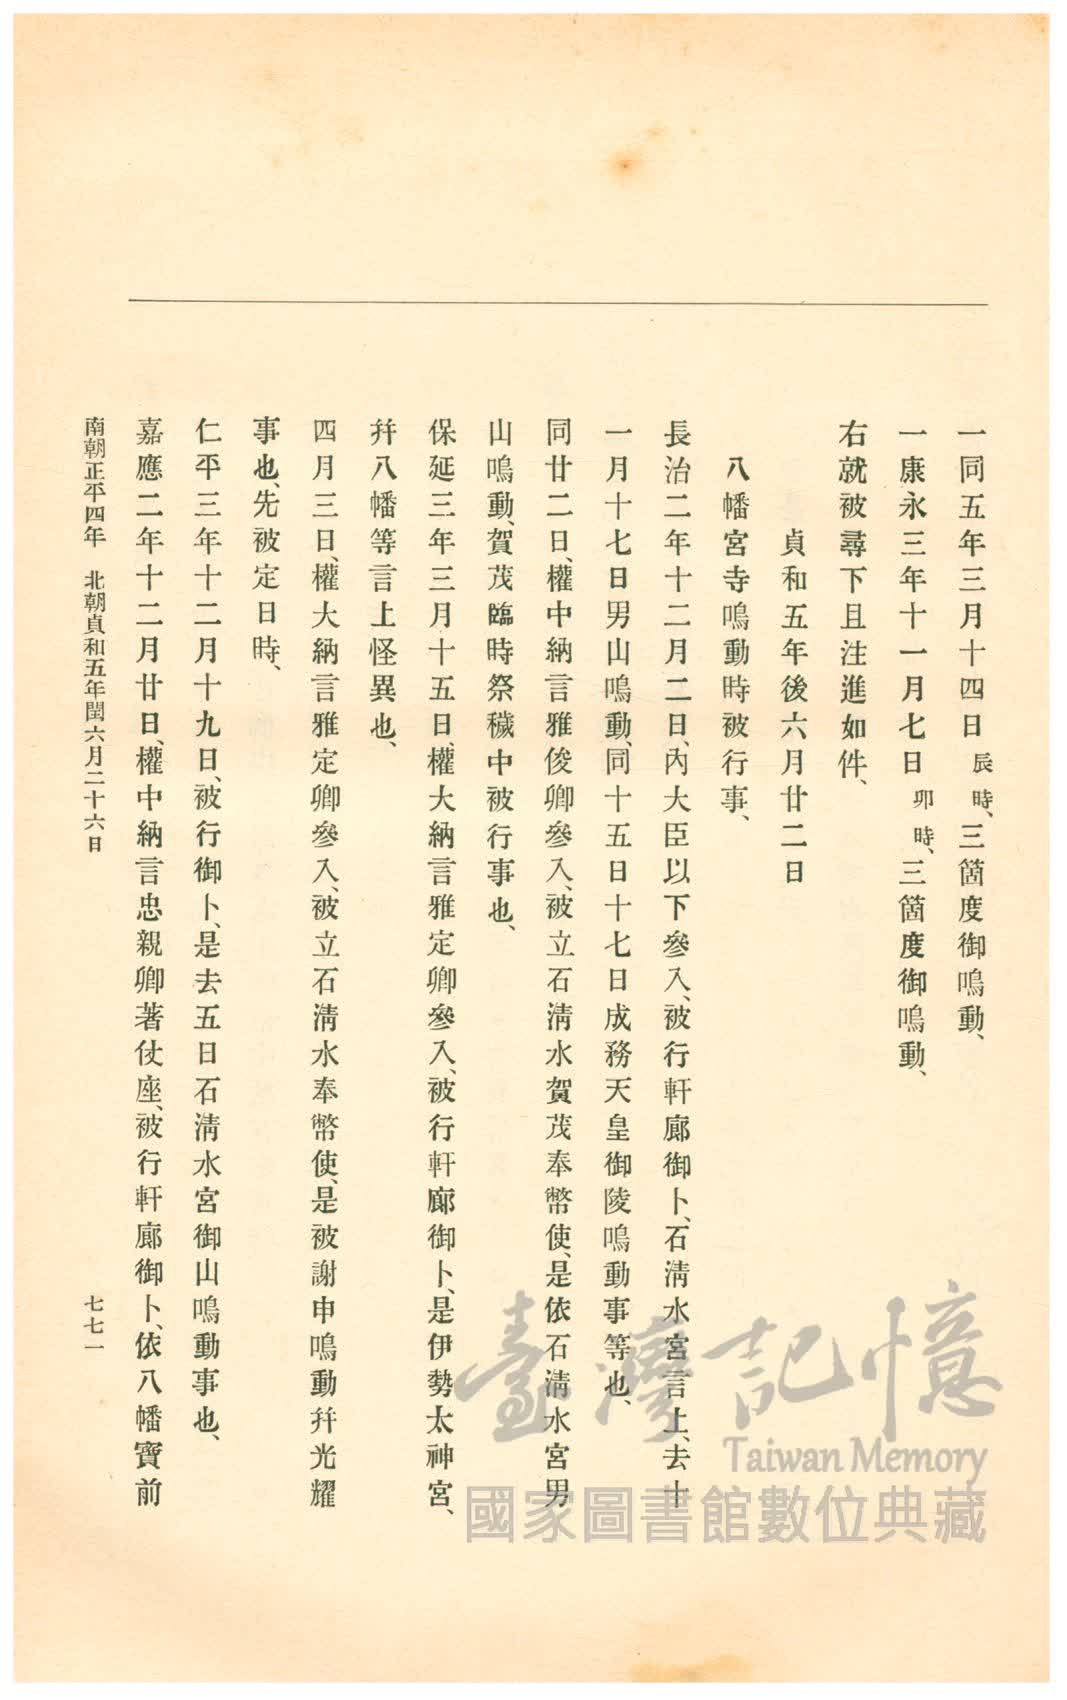 一同五年三月十四日辰時、三箇度御鳴動、
一康永三年十一月七日卯時、三箇度御鳴動、
右就被尋下且注進如件、
貞和五年後六月廿二日
八幡宮寺鳴動時被行事、
長治二年十二月二日、內大臣以下參入、被行軒廊御卜、石淸水宮言上、去十
一月十七日男山鳴動、同十五日十七日成務天皇御陵鳴動事等也、
同廿二日、權中納言雅俊卿參入、被立石淸水賀茂奉幣使、是依石淸水宮男
山鳴動、賀茂臨時祭穢中被行事也、
保延三年三月十五日、權大納言雅定卿參入、被行軒廊御卜、是伊勢太神宮、
幷八幡等言上怪異也、
四月三日、權大納言雅定卿參入、被立石淸水奉幣使、是被謝申鳴動幷光耀
事也、先被定日時、
仁平三年十二月十九日、被行御卜、是去五日石淸水宮御山鳴動事也、
嘉應二年十二月廿日、權中納言忠親卿著仗座、被行軒廊御卜、依八幡寶前
南朝正平四年 北朝貞和五年閏六月二十六日
七七一
臺灣記憶
Taiwan Memory
國家圖書館數位典藏